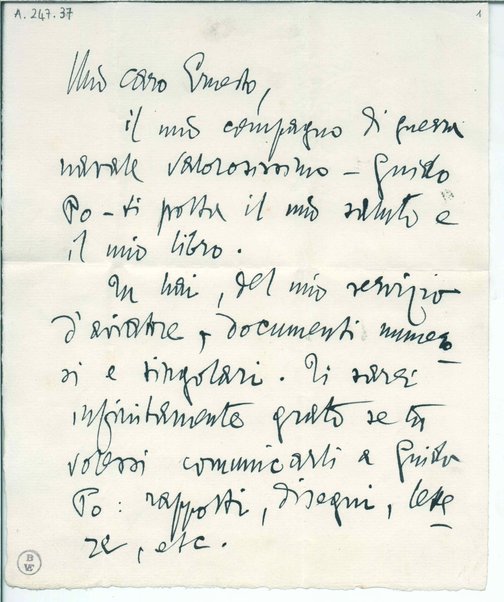 A. 247. 37
1
Mio caro Ernesto,
il mio compagno di guerra
navale valorosissimo – Guido
Po – ti porta il mio saluto e
il mio libro.
Tu hai, del mio servizio
d'aviatore, documenti nume-
si e singolari. Ti sarei
infinitamente grato se tu
volessi comunicarli a Guido
Po: rapporti, disegni, lette-
re, etc.